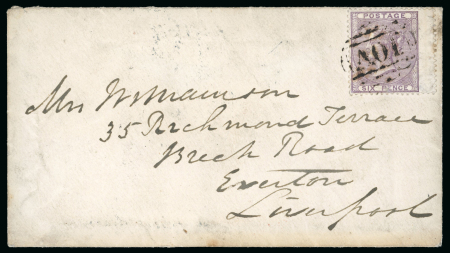 POSTAGE
A01
SIX PENCE
Mrs Williamson
35 Richmond Terrace
Breck Road
Everton
Liverpool